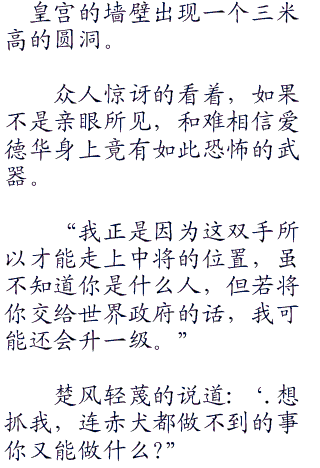 皇宫的墙壁出现一个三米
高的圆洞。
众人惊讶的看着，如果
不是亲眼所见，和难相信爱
德华身上竟有如此恐怖的武
器。
“我正是因为这双手所
以才能走上中将的位置，虽
不知道你是什么人，但若将
你交给世界政府的话，我可
能还会升一级。”
楚风轻蔑的说道：‘.想
抓我，连赤犬都做不到的事
你又能做什么?”